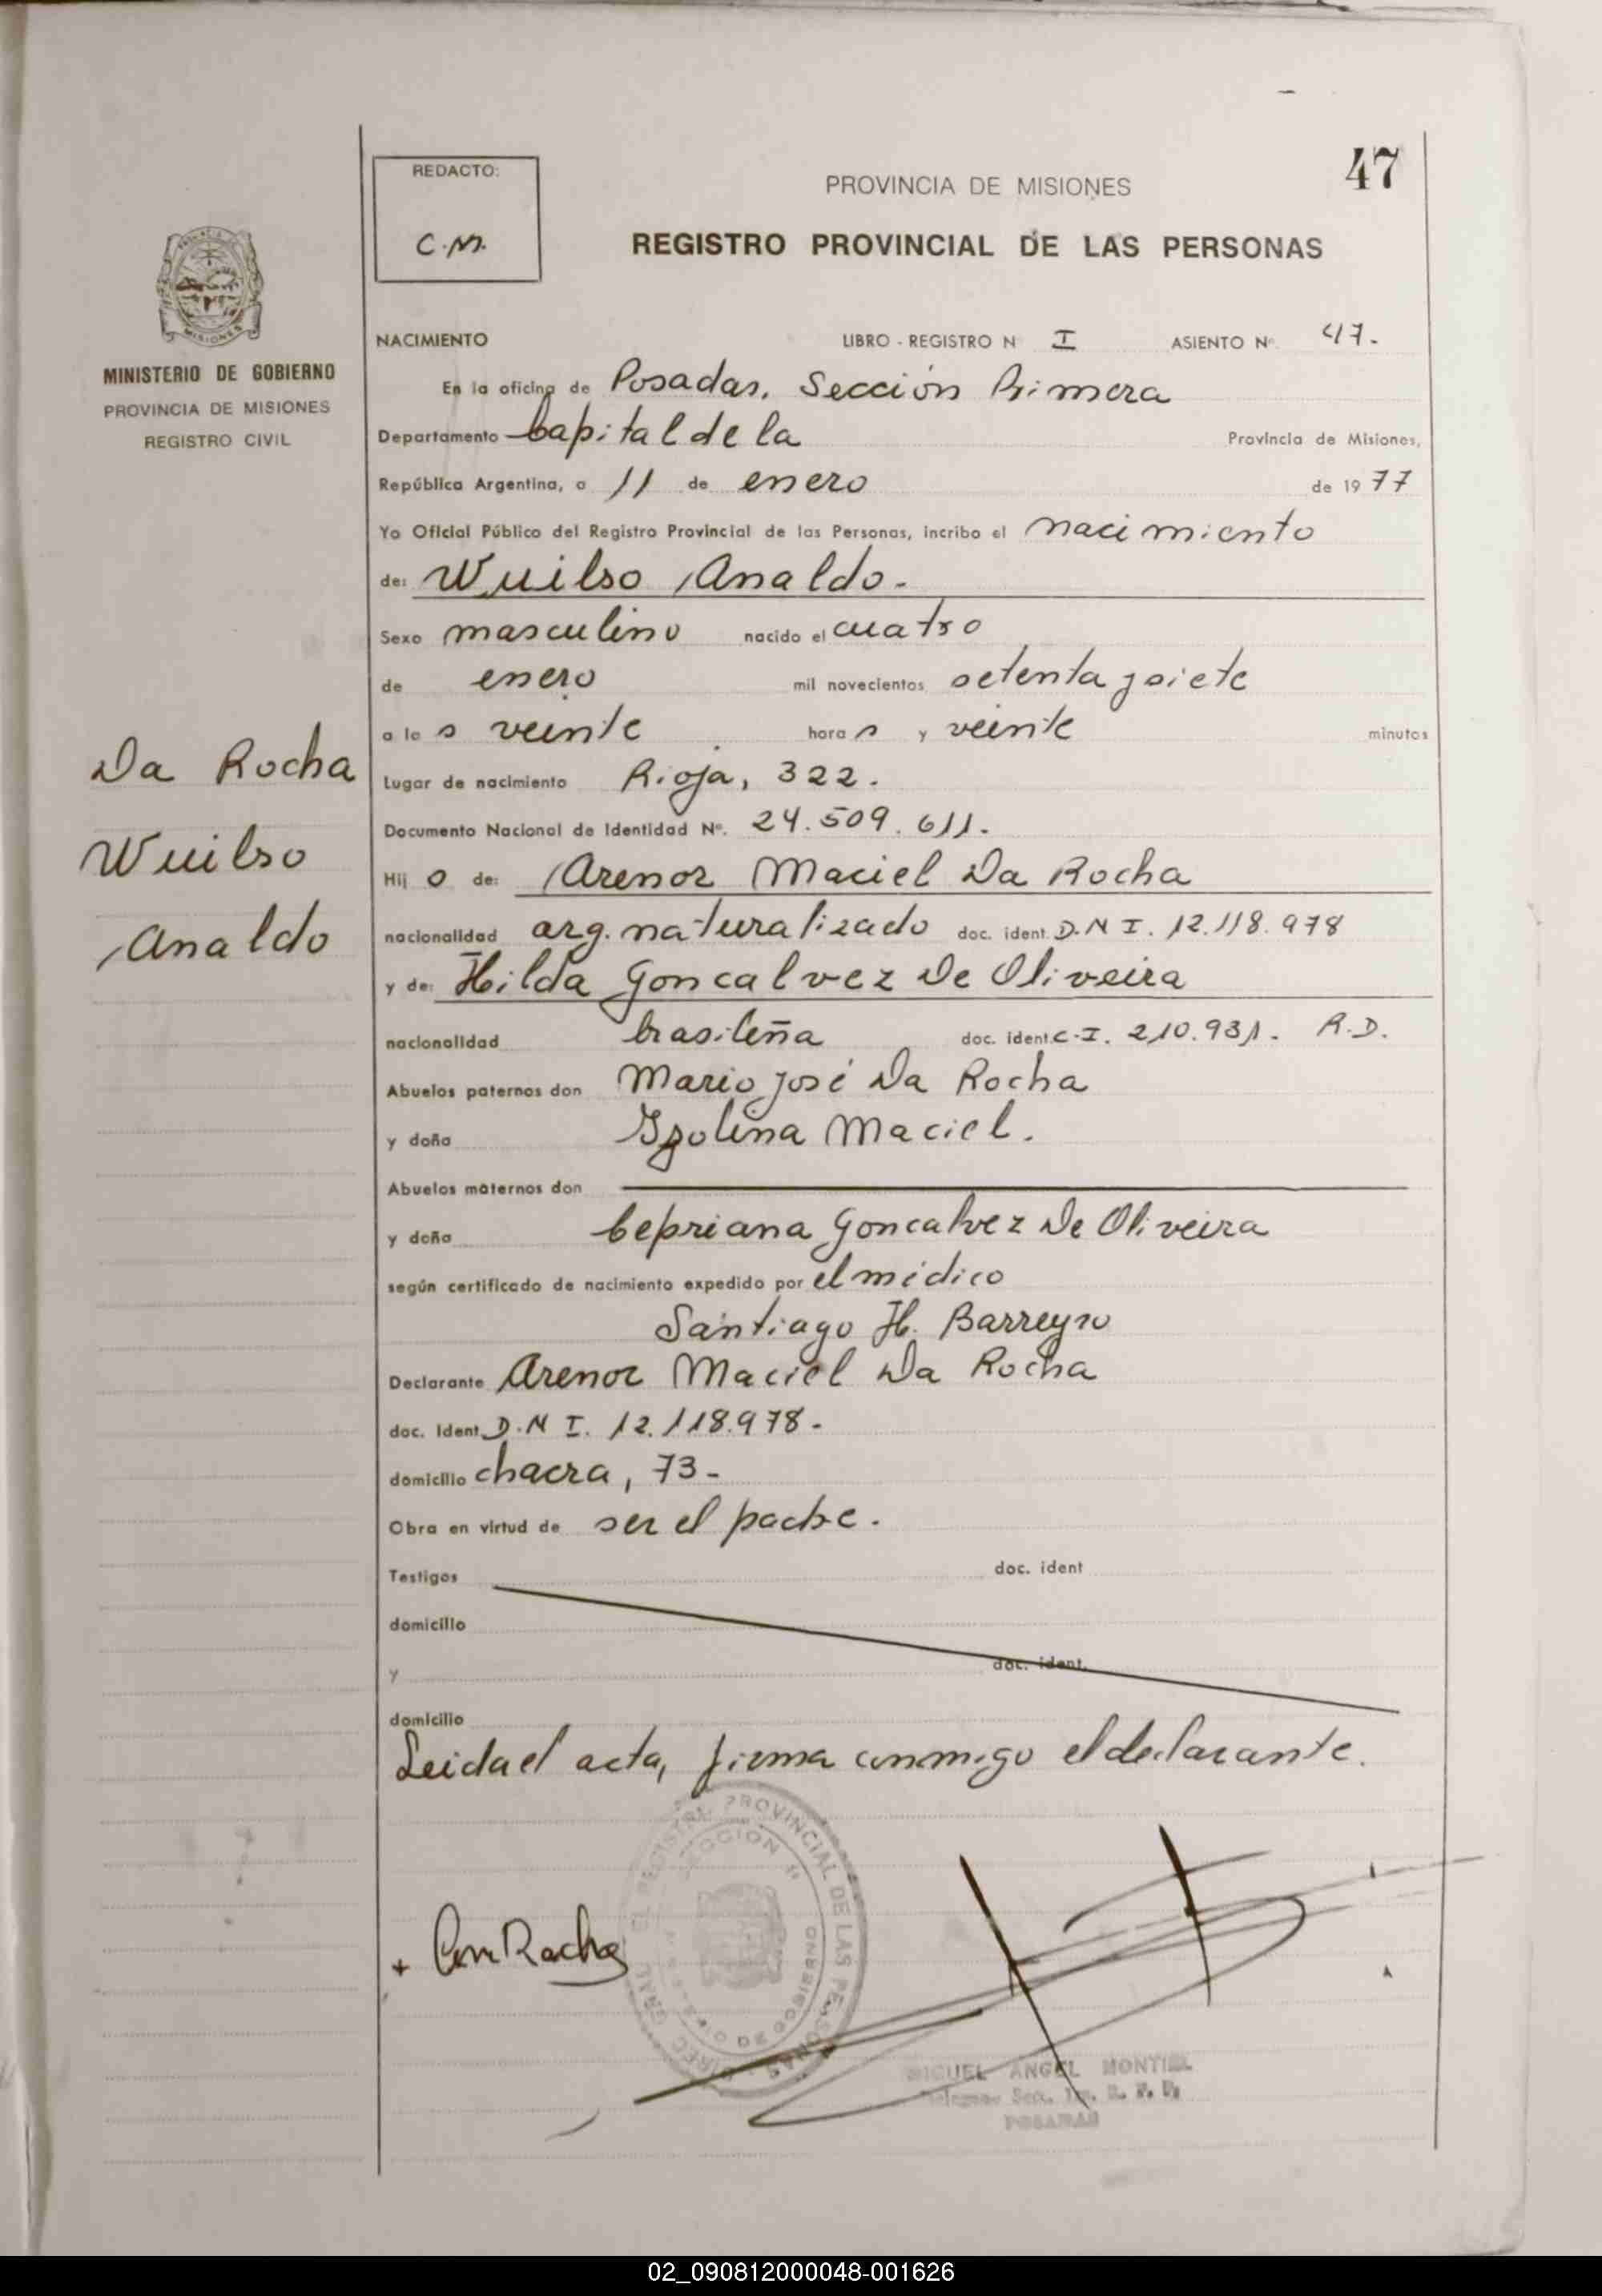 47
REDACTO:
C.M.
PROVINCIA DE MISIONES
REGISTRO PROVINCIAL DE LAS PERSONAS
MISIONES
MINISTERIO DE GOBIERNO
PROVINCIA DE MISIONES
REGISTRO CIVIL
NACIMIENTO LIBRO - REGISTRO N I ASIENTO Nº. 47.
En la oficina de Posadas, Sección Primera
Departamento Capital de la Provincia de Misiones,
República Argentina, a 11 de enero de 1977
Yo Oficial Público del Registro Provincial de las Personas, incribo el nacimiento
de: Wuilso Analdo.
Sexo masculino nacido el cuatro
de enero mil novecientos setenta y siete
a las veinte horas y veinte minutos
Lugar de nacimiento Rioja, 322.
Documento Nacional de Identidad Nº. 24.509.611.
Hijo de: Arenor Maciel Da Rocha
nacionalidad arg. naturalizado doc. ident. D.N I. 12.118.978
y de: Hilda Goncalvez De Oliveira
nacionalidad brasileña doc. ident. C.I. 210.931. R.D.
Abuelos paternos don Mario José Da Rocha
y doña Izolina Maciel.
Abuelos maternos don
y doña Cepriana Goncalvez De Oliveira
según certificado de nacimiento expedido por el médico
Santiago H. Barreyro
Declarante Arenor Maciel Da Rocha
doc. Ident. D.N I. 12.118.978-
domicilio chacra, 73-
Obra en virtud de ser el padre.
Testigos doc. ident
domicilio
y doc. ident.
domicilio
Leida el acta, firma conmigo el declarante.
Da Rocha
Wuilso
Analdo
REGISTRO PROVINCIAL DE LAS PERSONAS
SECCION
MIGUEL ANGEL MONTIEL
POSADAS
02_090812000048-001626